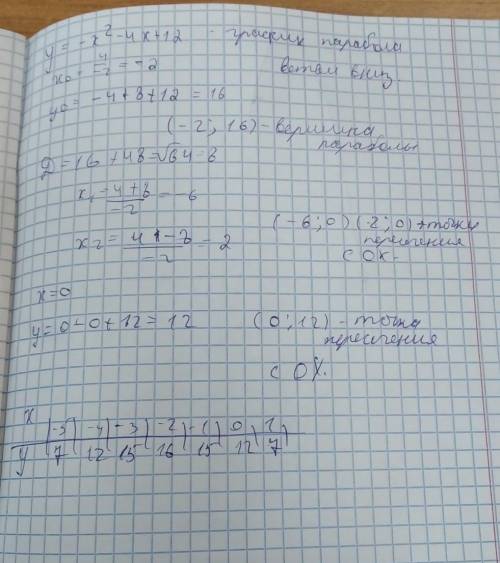 y = -x² - 4x + 12 - график парабола
x₀ = 4/-2 = -2 ветви вниз
y₀ = -4 + 8 + 12 = 16
(-2; 16) - вершина параболы
D = 16 + 48 = √64 = 8
x₁ = 4 + 8 / -2 = -6
(-6; 0) (2; 0) точки
пересечения
с OX.
x₂ = 4 - 8 / -2 = 2
x = 0
y = 0 - 0 + 12 = 12 (0; 12) - точка
пересечения
с OX.
x | -5 | -4 | -3 | -2 | -1 | 0 | 1
y | 7 | 12 | 15 | 16 | 15 | 12 | 7